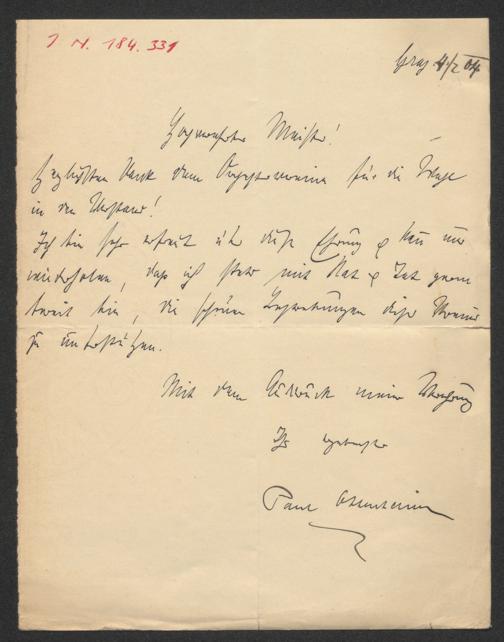 J. N. 184.331
Graz 4/2 04
Hochverehrter Meister!
Herzlichsten Dank dem Orchesterverein für die Wahl
in den Vorstand!
Ich bin sehr erfreut über diese Ehrung & kann nur
wiederholen, daß ich stets mit Rat & Tat gern
bereit bin, die schönen Bestrebungen dieses Vereins
zu unterstützen.
Mit dem Ausdruck meiner Verehrung
Ihr ergebenster
Paul